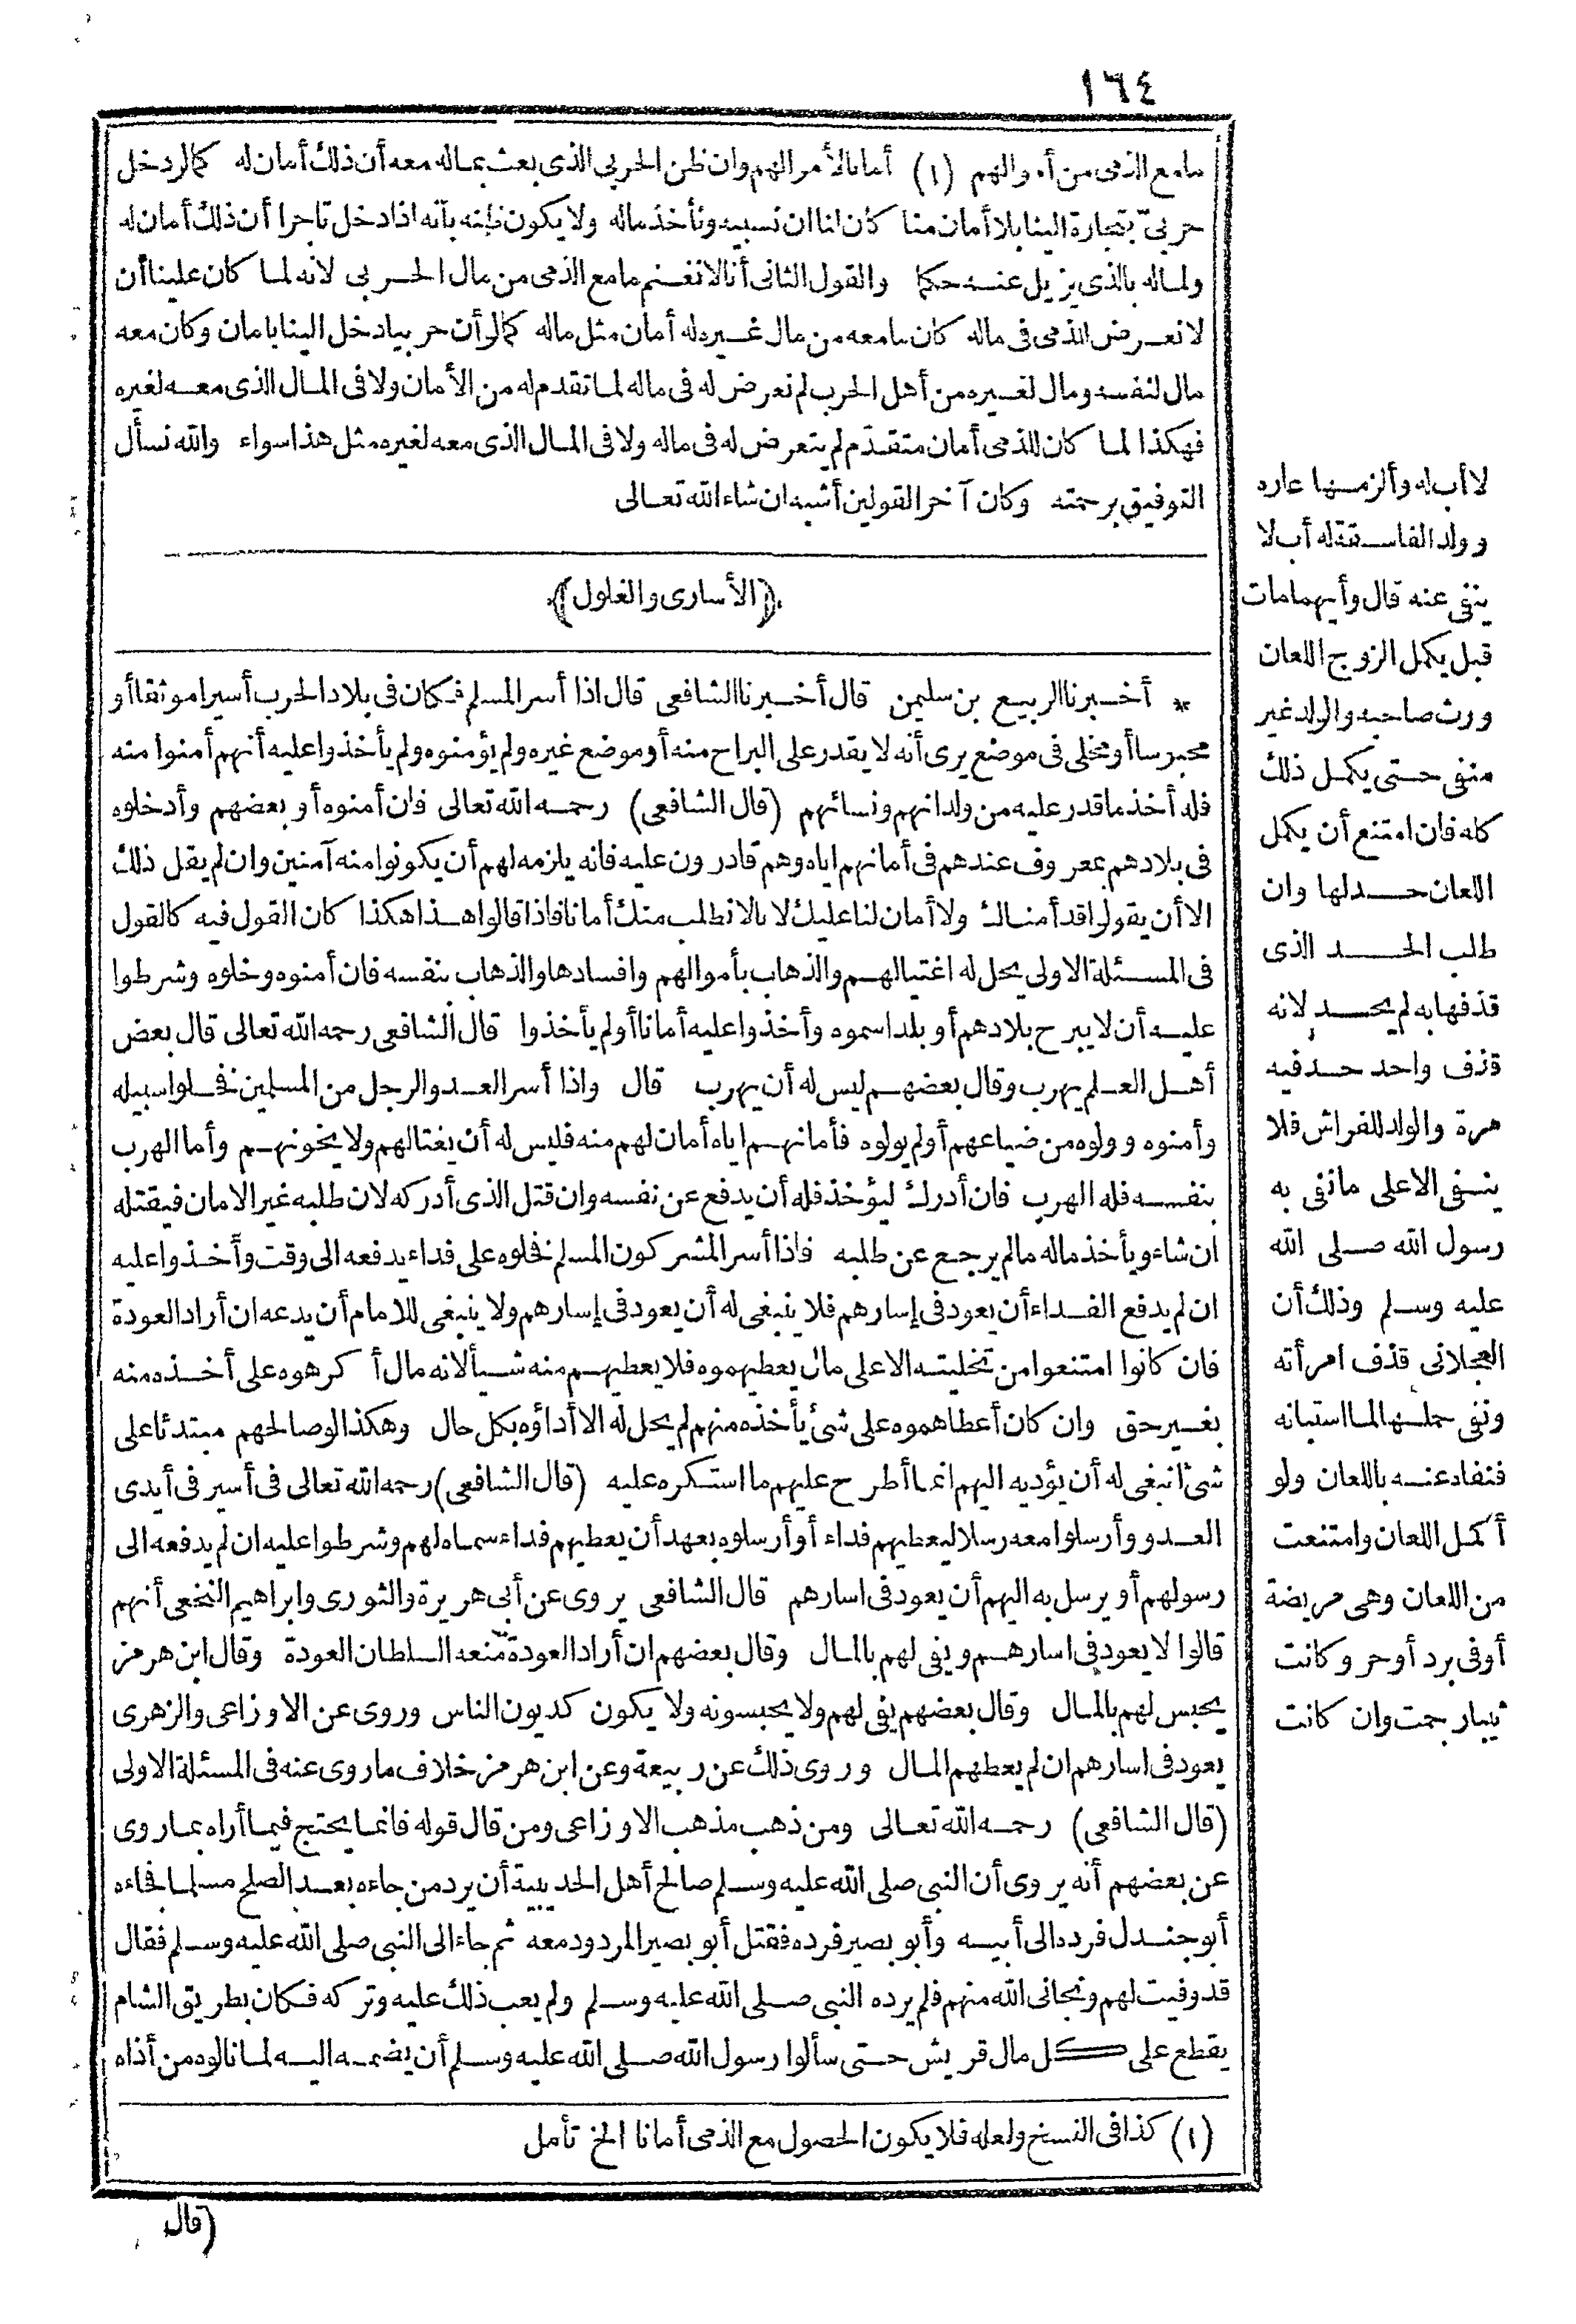 ١٦٤
مامع الذمى من أموالهم (١) أمانالأمر الهم وان ظن الحربى الذى بعث بماله معه أن ذلك أمان له كمالو دخل
حربىّ بتجارة الينا بلا أمان منا كان لنا ان نسبيه ونأخذ ماله ولا يكون ظنه بأنه اذا دخل تاجرا أن ذلك أمان له
ولماله بالذى يزيل عنه حكما والقول الثانى أنا لا نغنم مامع الذمى من مال الحربى لانه لما كان علينا أن
لا نعرض للذمى فى ماله كان مامعه من مال غيره له أمان مثل ماله كمالو أن حربيا دخل الينا بامان وكان معه
مال لنفسه ومال لغيره من أهل الحرب لم نعرض له فى ماله لما تقدم له من الأمان ولا فى المال الذى معه لغيره
فهكذا لما كان للذمى أمان متقدّم لم يتعرض له فى ماله ولا فى المال الذى معه لغيره مثل هذا سواء والله نسأل
التوفيق برحمته وكان آخر القولين أشبه ان شاء الله تعالى
﴿الأسارى والغلول﴾
* أخبرنا الربيع بن سليمن قال أخبرنا الشافعى قال اذا أسر المسلم فكان فى بلاد الحرب أسيرا موثقا أو
محبوسا أو مخلى فى موضع يرى أنه لا يقدر على البراح منه أو موضع غيره ولم يؤمنوه ولم يأخذوا عليه أنهم أمنوا منه
فله أخذ ما قدر عليه من ولدانهم ونسائهم (قال الشافعى) رحمه الله تعالى فان أمنوه أو بعضهم وأدخلوه
فى بلادهم بمعروف عندهم فى أمانهم اياه وهم قادرون عليه فانه يلزمه لهم أن يكونوا منه آمنين وان لم يقل ذلك
الا أن يقولوا قد أمناك ولا أمان لنا عليك لانا لا نطلب منك أمانا فاذا قالوا هذا هكذا كان القول فيه كالقول
فى المسئلة الاولى يحل له اغتيالهم والذهاب بأموالهم وافسادها والذهاب بنفسه فان أمنوه وخلوه وشرطوا
عليه أن لا يبرح بلادهم أو بلدا سموه وأخذوا عليه أمانا أو لم يأخذوا قال الشافعى رحمه الله تعالى قال بعض
أهل العلم يهرب وقال بعضهم ليس له أن يهرب قال واذا أسر العدو الرجل من المسلمين فخلوا سبيله
وأمنوه وولوه من ضياعهم أو لم يولوه فأمانهم اياه أمان لهم منه فليس له أن يغتالهم ولا يخونهم وأما الهرب
بنفسه فله الهرب فان أدرك ليؤخذ فله أن يدفع عن نفسه وان قتل الذى أدركه لان طلبه غير الامان فيقتله
ان شاء ويأخذ ماله مالم يرجع عن طلبه فاذا أسر المشركون المسلم فخلوه على فداء يدفعه الى وقت وأخذوا عليه
ان لم يدفع الفداء أن يعود فى إسارهم فلا ينبغى له أن يعود فى إسارهم ولا ينبغى للامام أن يدعه ان أراد العودة
فان كانوا امتنعوا من تخليته الا على مال يعطيهموه فلا يعطيهم منه شيأ لانه مال أكرهوه على أخذه منه
بغير حق وان كان أعطاهموه على شئ يأخذه منهم لم يحل له الا أداؤه بكل حال وهكذا لو صالحهم مبتدئا على
شئ انبغى له أن يؤديه اليهم انما أطرح عليهم ما استكره عليه (قال الشافعى) رحمه الله تعالى فى أسير فى أيدى
العدو وأرسلوا معه رسلا ليعطيهم فداء أو أرسلوه بعهد أن يعطيهم فداء سماه لهم وشرطوا عليه ان لم يدفعه الى
رسولهم أو يرسل به اليهم أن يعود فى اسارهم قال الشافعى يروى عن أبى هريرة والثورى وابراهيم النخعى أنهم
قالوا لا يعود فى اسارهم ويفى لهم بالمال وقال بعضهم ان أراد العودة منعه السلطان العودة وقال ابن هرمز
يحبس لهم بالمال وقال بعضهم يفى لهم ولا يحبسونه ولا يكون كديون الناس وروى عن الاوزاعى والزهرى
يعود فى اسارهم ان لم يعطهم المال وروى ذلك عن ربيعة وعن ابن هرمز خلاف ماروى عنه فى المسئلة الاولى
(قال الشافعى) رحمه الله تعالى ومن ذهب مذهب الاوزاعى ومن قال قوله فانما يحتج فيما أراه بماروى
عن بعضهم أنه يروى أن النبى صلى الله عليه وسلم صالح أهل الحديبية أن يرد من جاءه بعد الصلح مسلما فجاءه
أبو جندل فرده الى أبيه وأبو بصير فرده فقتل أبو بصير المردود معه ثم جاء الى النبى صلى الله عليه وسلم فقال
قد وفيت لهم ونجانى الله منهم فلم يرده النبى صلى الله عليه وسلم ولم يعب ذلك عليه وتركه فكان بطريق الشام
يقطع على كل مال قريش حتى سألوا رسول الله صلى الله عليه وسلم أن يضمه اليه لما نالوه من أذاه
(١) كذا فى النسخ ولعله فلا يكون الحصول مع الذمى أمانا الخ تأمل
(قال
لا أب له وألزمها عاره
وولد الفاسقة له أب لا
ينفى عنه قال وأيهما مات
قبل يكمل الزوج اللعان
ورث صاحبه والولد غير
منفى حتى يكمل ذلك
كله فان امتنع أن يكمل
اللعان حد لها وان
طلب الحد الذى
قذفها به لم يحد لانه
قذف واحد حد فيه
مرة والولد للفراش فلا
ينفى الاعلى مانفى به
رسول الله صلى الله
عليه وسلم وذلك أن
العجلانى قذف امرأته
ونفى حملها لما استبانه
فنفاه عنه باللعان ولو
أكمل اللعان وامتنعت
من اللعان وهى مريضة
أو فى برد أو حر وكانت
ثيبا رجمت وان كانت